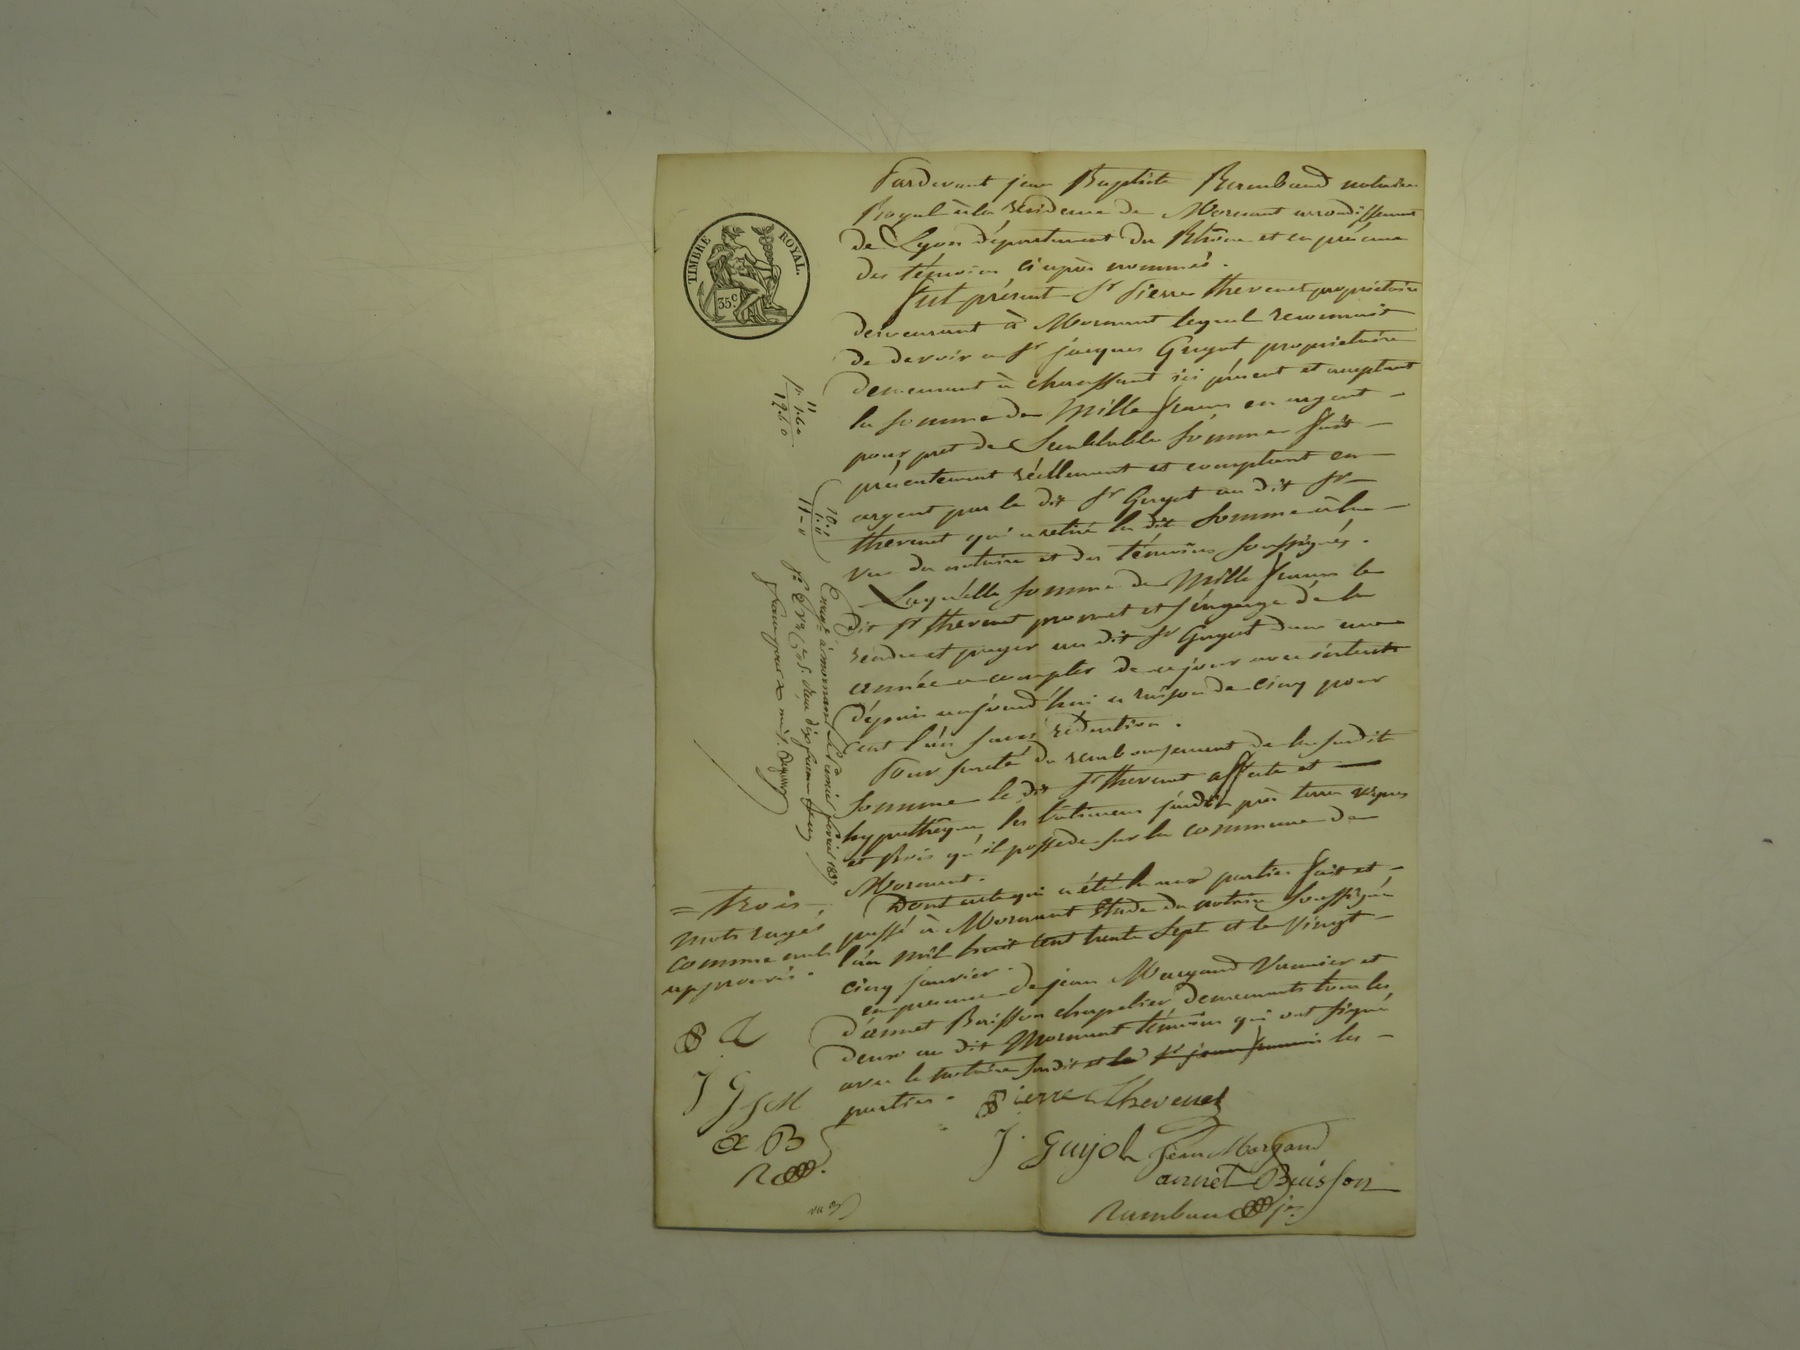 TIMBRE ROYAL.
35c
Pardevant jean Baptiste Rambaud notaire
Royal à la résidence de Mornant arrondissement
de Lyon département du Rhône et en présence
des témoins ci après nommés.
fut présent Sr pierre thevenet propriétaire
demeurant à Mornant lequel reconnait
de devoir a Sr jacques Guyot propriétaire
demeurant à chaussant ici présent et acceptant
la somme de Mille francs en argent -
pour pret de Semblable somme fait -
présentement réellement et comptant en -
argent par le dit Sr Guyot au dit Sr -
thevenet qui a retiré la dit somme à la -
vue du notaire et des témoins soussignés.
Laquelle somme de Mille francs le
dit Sr thevenet promet et s'engage de la
rendre et payer au dit Sr Guyot dans une
année a compter de ce jour avec intérets
dépuis aujourd'hui a raison de cinq pour
cent l'an sans réduction.
Pour sureté du remboursement de la susdit
somme le dit Sr thevenet affecte et —
hypothèque les batimens jardin près terre vignes
et bois qu'il possede sur la commune de
Mornant.
Dont acte qui a été lu aux parties fait et -
passé à Mornant étude du notaire soussigné
l'an mil huit cent trente sept et le vingt -
cinq janvier.
en presence de jean Margand et
d'annet Buisson chapelier demeurants tous les
deux au dit Mornant témoins qui ont signé
avec le notaire susdit et les -
parties.
= trois
mots rayés
comme nuls
approuvés.
J G J M
a B
R
Pierre Thevenet
J. Guyot jean Margand
annet Buisson
Rambaud
11
10.60
11-11
Enregt à mornant le premier fevrier 1837